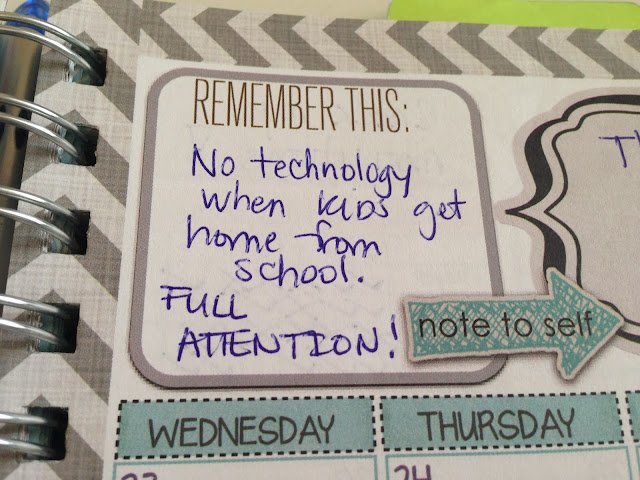 REMEMBER THIS:
No technology
when kids get
home from
school.
FULL
ATTENTION!
note to self
WEDNESDAY
THURSDAY
24